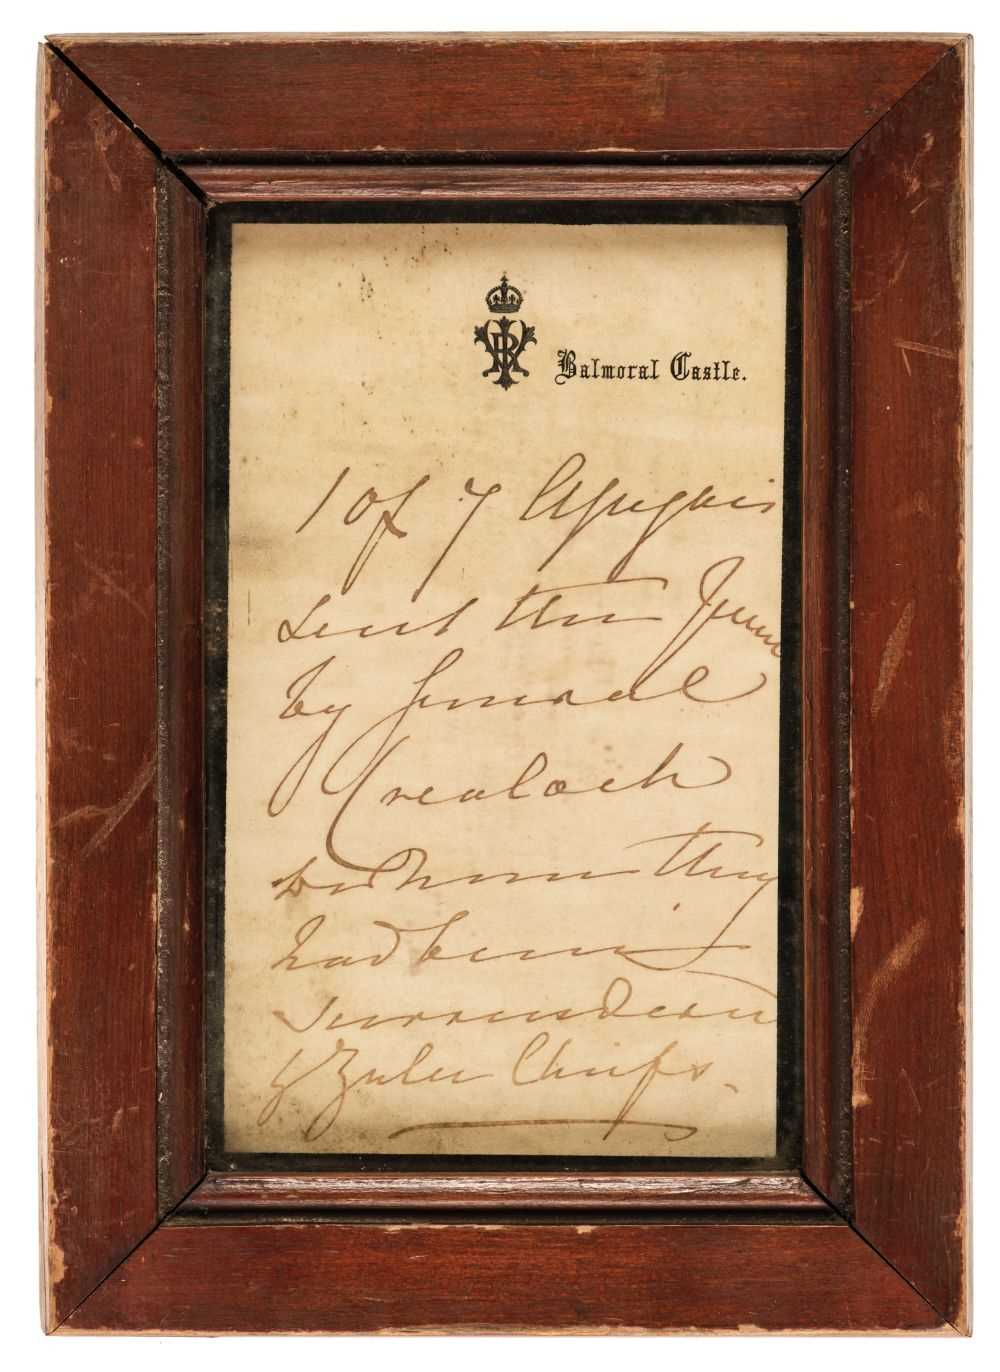 VRI
Balmoral Castle.
1 of 7 Assegais
sent the Queen
by General
Crealock
to whom they
had been
surrendered
by Zulu Chiefs.